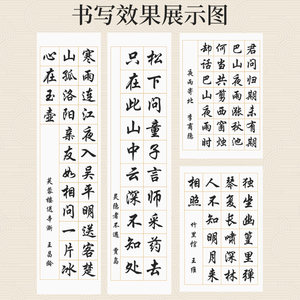 书写效果展示图
君问归期未有期
巴山夜雨涨秋池
何当共剪西窗烛
却话巴山夜雨时
夜雨寄北 李商隐
独坐幽篁里弹
琴复长啸深林
人不知明月来
相照
竹里馆 王维
松下问童子言师采药去
只在此山中云深不知处
寻隐者不遇 贾岛
寒雨连江夜入吴平明送客楚
山孤洛阳亲友如相问一片冰
心在玉壶
芙蓉楼送辛渐 王昌龄